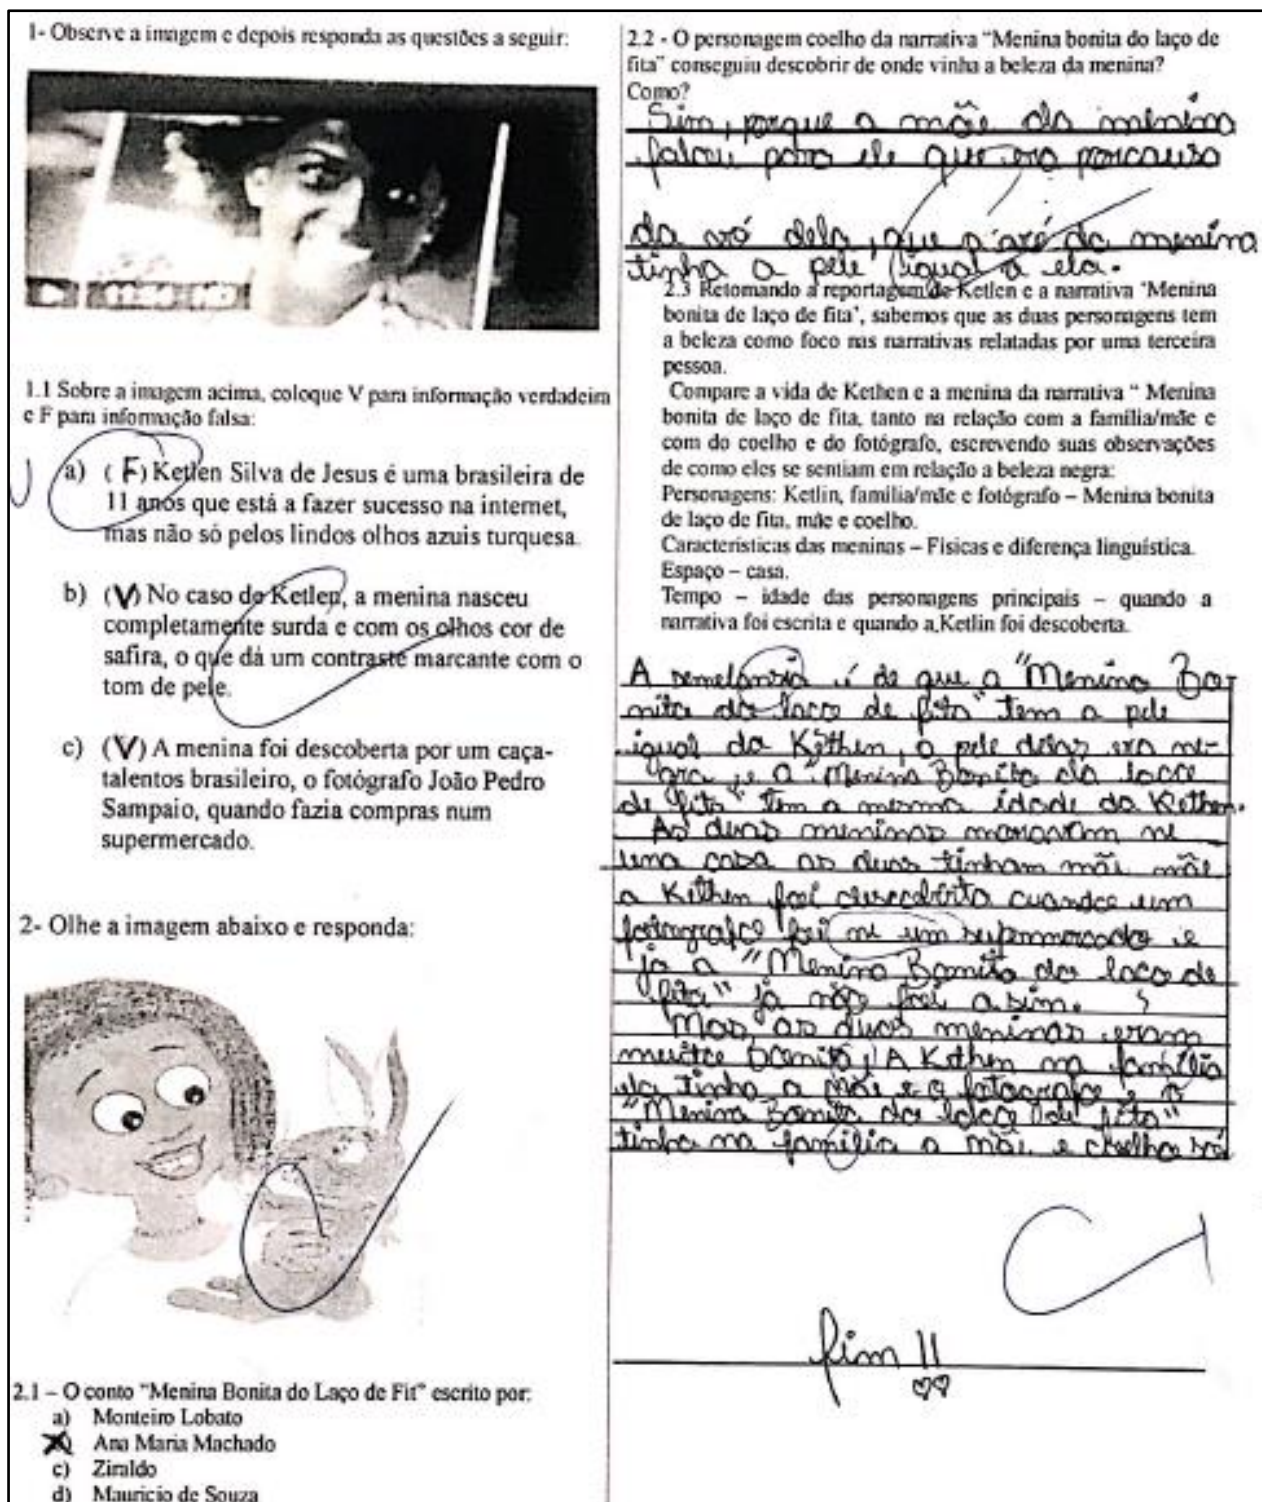 1- Observe a imagem e depois responda as questões a seguir:
11:54 HD
1.1 Sobre a imagem acima, coloque V para informação verdadeira
e F para informação falsa:
a) (F) Ketlen Silva de Jesus é uma brasileira de
11 anos que está a fazer sucesso na internet,
mas não só pelos lindos olhos azuis turquesa.
b) (V) No caso de Ketlen, a menina nasceu
completamente surda e com os olhos cor de
safira, o que dá um contraste marcante com o
tom de pele.
c) (V) A menina foi descoberta por um caça-
talentos brasileiro, o fotógrafo João Pedro
Sampaio, quando fazia compras num
supermercado.
2- Olhe a imagem abaixo e responda:
2.1 – O conto "Menina Bonita do Laço de Fit" escrito por:
a) Monteiro Lobato
X Ana Maria Machado
c) Ziraldo
d) Mauricio de Souza
2.2 - O personagem coelho da narrativa "Menina bonita do laço de
fita" conseguiu descobrir de onde vinha a beleza da menina?
Como?
Sim, porque a mãe da menina
falou para ele que era porcausa
da vó dela, que a avó da menina
tinha a pele igual a ela.
2.3 Retomando a reportagem de Ketlen e a narrativa 'Menina
bonita de laço de fita', sabemos que as duas personagens tem
a beleza como foco nas narrativas relatadas por uma terceira
pessoa.
Compare a vida de Kethen e a menina da narrativa " Menina
bonita de laço de fita, tanto na relação com a família/mãe e
com do coelho e do fotógrafo, escrevendo suas observações
de como eles se sentiam em relação a beleza negra:
Personagens: Ketlin, família/mãe e fotógrafo – Menina bonita
de laço de fita, mãe e coelho.
Características das meninas – Físicas e diferença linguística.
Espaço – casa.
Tempo – idade das personagens principais – quando a
narrativa foi escrita e quando a Ketlin foi descoberta.
A semelansia é de que a "Menina Bo
nita do laço de fita" tem a pele
igual da Kethen, a pele delas era ne-
gra, e a "Menina Bonita do laco
de fita" tem a mesma idade da Kethen.
As duas meninas moravam ne
uma casa as duas tinham mãe
a Kethen foi descobrita cuando um
fotografo foi ne um supermercado e
ja a "Menina Bonita do laco de
fita" já não foi asim.
Mas as duas meninas eram
muito bonita, A Kethen na família
ela tinha a mãe e o fotografo e a
"Menina Bonita do laco de fita"
tinha na família a mãe e coelho só
fim !!